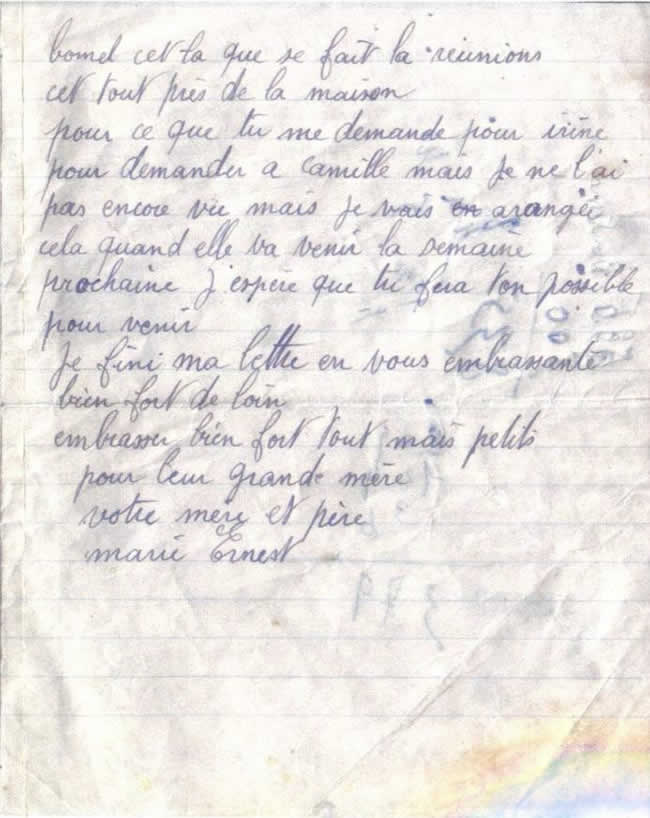 bomel cet la que se fait la réunions
cet tout près de la maison
pour ce que tu me demande pour irène
pour demander a Camille mais je ne l'ai
pas encore vu mais je vais en arangée
cela quand elle va venir la semaine
prochaine j'espère que tu fera ton possible
pour venir
Je fini ma lettre en vous embrassante
bien fort de loin
embrasser bien fort tout mais petits
pour leur grande mère
votre mère et père
marie Ernest